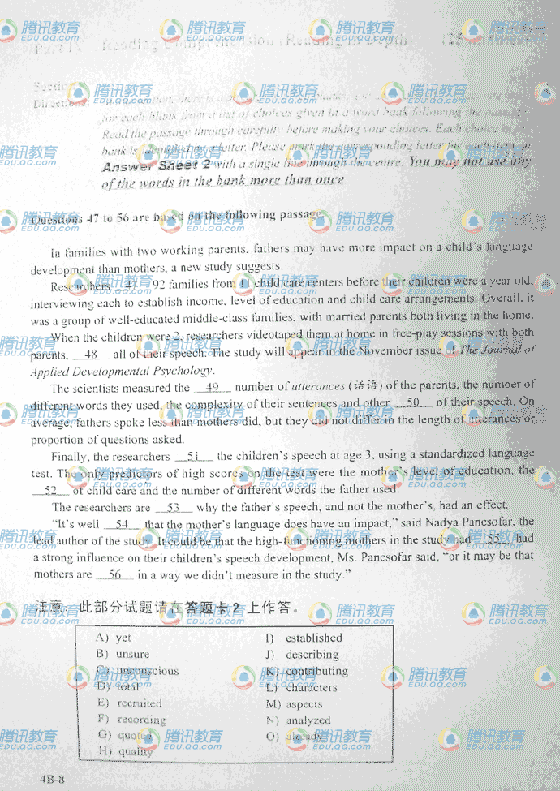 Reading Comprehension (Reading in Depth) (25 minutes)
Section
Directions:
for each blank from a list of choices given in a word bank following the passage.
Read the passage through carefully before making your choices. Each choice in
bank is identified by a letter. Please mark the corresponding letter for each item on
Answer Sheet 2 with a single line through the centre. You may not use any
of the words in the bank more than once
Questions 47 to 56 are based on the following passage.
In families with two working parents, fathers may have more impact on a child's language
development than mothers, a new study suggests
Researchers 47 92 families from 11 child care centers before their children were a year old,
interviewing each to establish income, level of education and child care arrangements. Overall, it
was a group of well-educated middle-class families, with married parents both living in the home.
When the children were 2, researchers videotaped them at home in free-play sessions with both
parents, 48 all of their speech. The study will appear in the November issue of The Journal of
Applied Developmental Psychology.
The scientists measured the 49 number of utterances (话语) of the parents, the number of
different words they used, the complexity of their sentences and other 50 of their speech. On
average, fathers spoke less than mothers did, but they did not differ in the length of utterances or
proportion of questions asked.
Finally, the researchers 51 the children's speech at age 3, using a standardized language
test. The only predictors of high scores on the test were the mother's level of education, the
52 of child care and the number of different words the father used
The researchers are 53 why the father's speech, and not the mother's, had an effect.
"It's well 54 that the mother's language does have an impact," said Nadya Pancsofar, the
lead author of the study. It could be that the high-functioning mothers in the study had 55 had
a strong influence on their children's speech development, Ms. Pancsofar said, "or it may be that
mothers are 56 in a way we didn't measure in the study."
注意：此部分试题请在答题卡 2 上作答。
A) yet I) established
B) unsure J) describing
C) unconscious K) contributing
D) total L) characters
E) recruited M) aspects
F) recording N) analyzed
G) quoted O) already
H) quality
4B-8
腾讯教育
EDU.QQ.COM